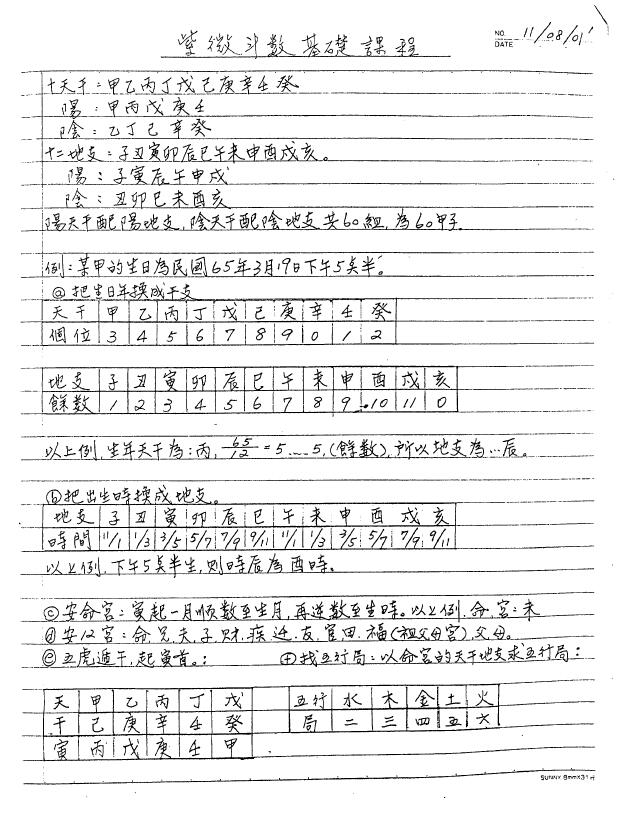 紫微斗数基礎課程
NO.
DATE 11/08/01'
十天干:甲乙丙丁戊己庚辛壬癸
陽:甲丙戊庚壬
陰:乙丁己辛癸
十二地支:子丑寅卯辰巳午未申酉戌亥。
陽:子寅辰午申戌
陰:丑卯巳未酉亥
陽天干配陽地支,陰天干配陰地支共60組,為60甲子.
例:某甲的生日為民國65年3月19日下午5点半。
ⓐ把生日年換成干支
天干 甲 乙 丙 丁 戊 己 庚 辛 壬 癸
個位 3 4 5 6 7 8 9 0 1 2
地支 子 丑 寅 卯 辰 巳 午 未 申 酉 戌 亥
餘数 1 2 3 4 5 6 7 8 9 10 11 0
以上例,生年天干為:丙, 65/12 = 5……5,(餘数),所以地支為…辰。
ⓑ把出生時換成地支。
地支 子 丑 寅 卯 辰 巳 午 未 申 酉 戌 亥
時間 11/1 1/3 3/5 5/7 7/9 9/11 11/1 1/3 3/5 5/7 7/9 9/11
以上例,下午5点半生,則時辰為酉時。
ⓒ安命宮:寅起一月順数至生月,再逆数至生時。以上例,命宮:未
ⓓ安12宮:命兄夫子財疾迁友官田福(祖父母宮)父母。
ⓔ五虎遁干,起寅首。: ⓕ找五行局:以命宮的天干地支求五行局:
天 甲 乙 丙 丁 戊 五行 水 木 金 土 火
干 己 庚 辛 壬 癸 局 二 三 四 五 六
寅 丙 戊 庚 壬 甲
SUNNY 8mm×31行